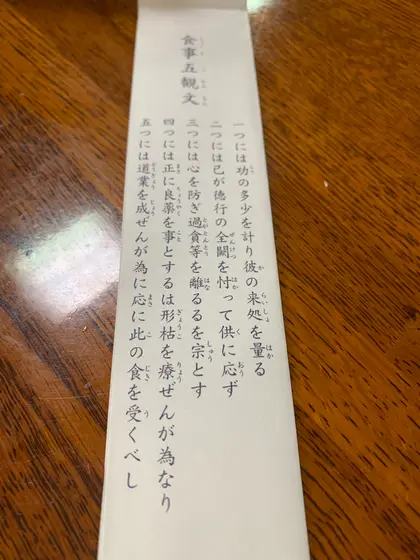 食事五観文
一つには功の多少を計り彼の来処を量る
二つには己が徳行の全闕を忖って供に応ず
三つには心を防ぎ過貪等を離るるを宗とす
四つには正に良薬を事とするは形枯を療ぜんが為なり
五つには道業を成ぜんが為に応に此の食を受くべし